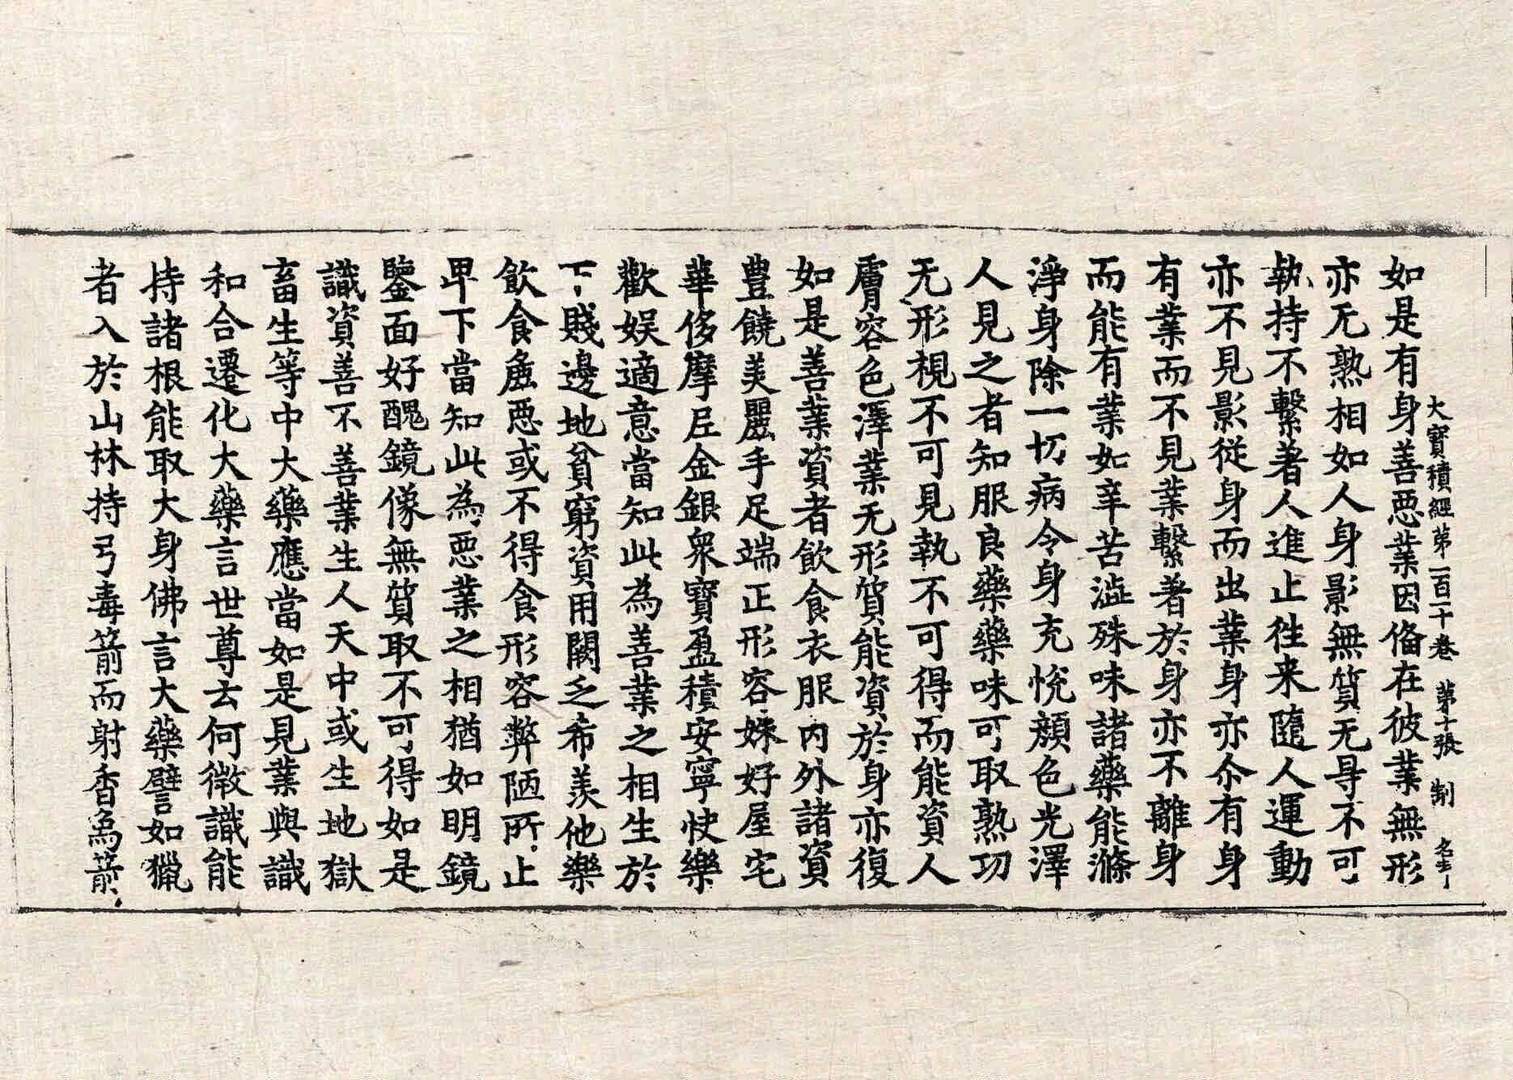 大寶積經第一百十卷　第十張　制
如是有身善惡業因俻在彼業無形
亦无熟相如人身影無質无导不可
執持不繫著人進止徃来隨人運動
亦不見影從身而出業身亦尒有身
有業而不見業繫著於身亦不離身
而能有業如辛苦澁殊味諸藥能滌
淨身除一切病令身充恱顔色光澤
人見之者知服良藥藥味可取熟功
无形視不可見執不可得而能資人
膚容色澤業无形質能資於身亦復
如是善業資者飲食衣服內外諸資
豊饒美麗手足端正形容姝好屋宅
華侈摩尼金銀衆寶盈積安寧快樂
歡娱適意當知此為善業之相生於
下賤邊地貧窮資用闕乏希羨他樂
飲食麁惡或不得食形容弊陋所止
卑下當知此為惡業之相猶如明鏡
鑒面好醜鏡像無質取不可得如是
識資善不善業生人天中或生地獄
畜生等中大藥應當如是見業與識
和合遷化大藥言世尊云何微識能
持諸根能取大身佛言大藥譬如獵
者入於山林持弓毒箭而射香為箭